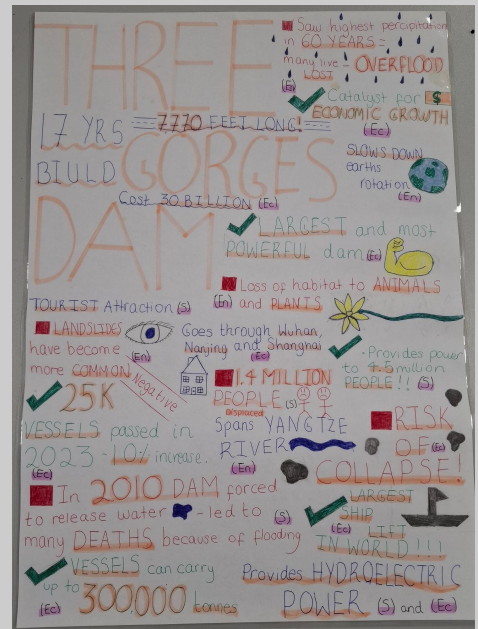 THREE
GORGES
DAM
Saw highest percipitation
in 60 YEARS =
many live - OVERFLOOD
LOST
(En)
Catalyst for $
ECONOMIC GROWTH
(Ec)
17 YRS
BIULD
7770 FEET LONG!
SLOWS DOWN
earths
rotation
(En)
Cost 30 BILLION (Ec)
LARGEST and most
POWERFUL dam (Ec)
Loss of habitat to ANIMALS
(En) and PLANTS
TOURIST Attraction (S)
LANDSLIDES
have become
more COMMON
(En)
Negative
Goes through Wuhan,
Nanjing and Shanghai
(Ec)
- Provides power
to 4.5 million
PEOPLE!! (S)
25K
VESSELS passed in
2023 - 10% increase..
(Ec)
1.4 MILLION
PEOPLE (S)
Displaced
Spans YANGTZE
RIVER
(En)
RISK
OF (Ec)
COLLAPSE!
(Ec)
In 2010 DAM forced
to release water - led to (S)
many DEATHS because of flooding
LARGEST
SHIP
(Ec) LIFT
IN WORLD!!!
VESSELS can carry
up to 300,000 tonnes
(Ec)
Provides HYDROELECTRIC
POWER (S) and (Ec)